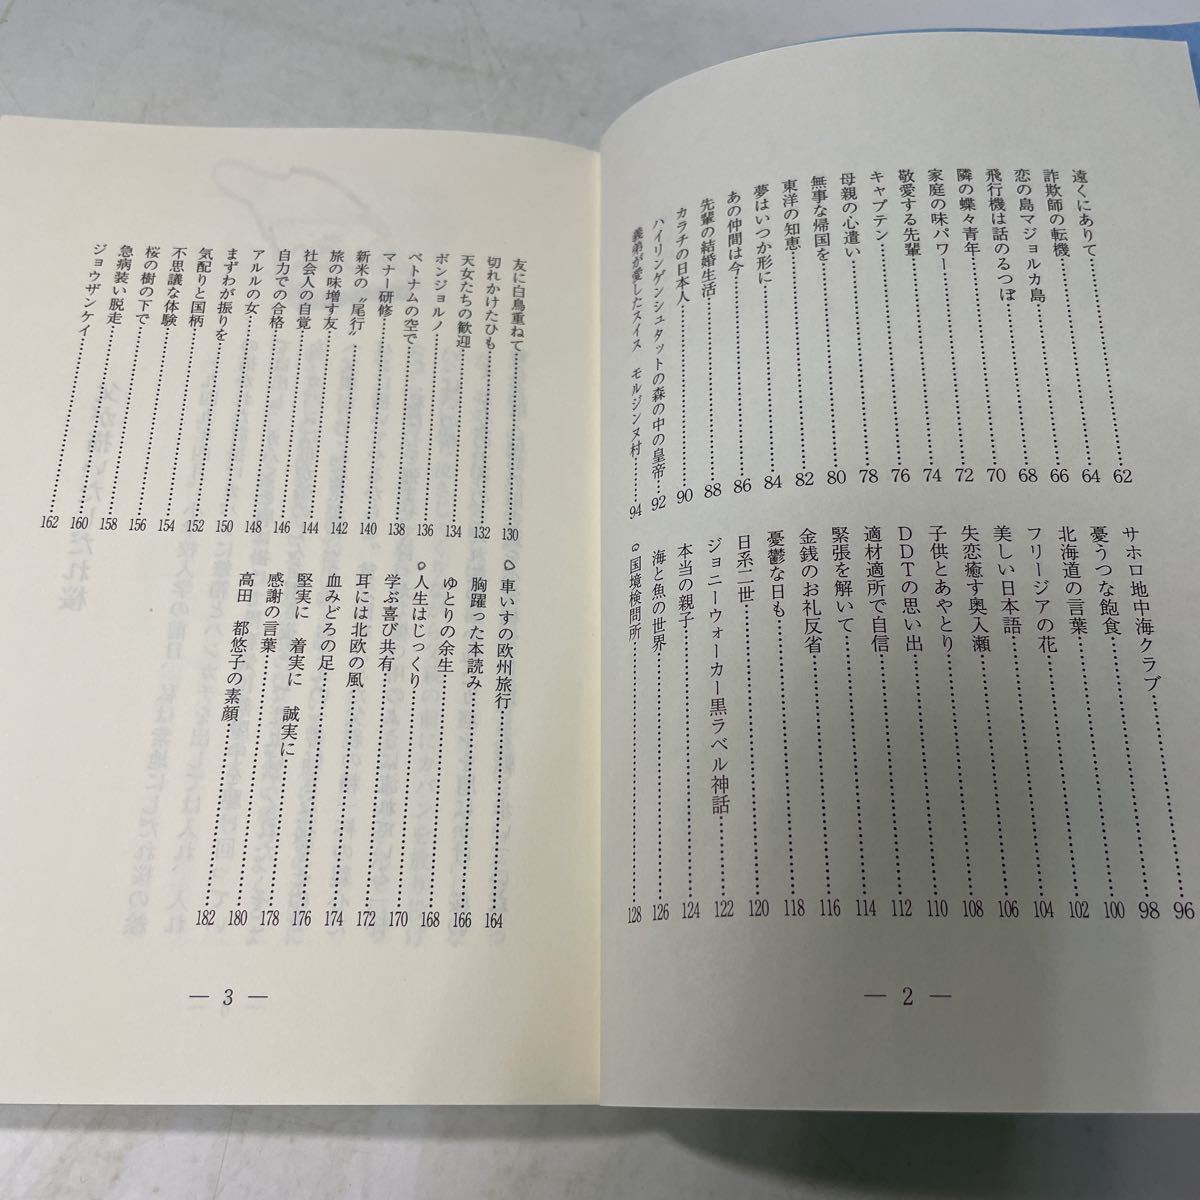 遠くにありて……62
詐欺師の転機……64
恋の島マジョルカ島……66
飛行機は話のるつぼ……68
隣の蝶々青年……70
家庭の味パワー……72
敬愛する先輩……74
キャプテン……76
母親の心遣い……78
無事な帰国を……80
東洋の知恵……82
夢はいつか形に……84
あの仲間は今……86
先輩の結婚生活……88
カラチの日本人……90
ハイリンゲンシュタットの森の中の皇帝……92
義弟が愛したスイス モルジンヌ村……94
サホロ地中海クラブ……96
憂うつな飽食……98
北海道の言葉……100
フリージアの花……102
美しい日本語……104
失恋癒す奥入瀬……106
子供とあやとり……108
DDTの思い出……110
適材適所で自信……112
緊張を解いて……114
金銭のお礼反省……116
憂鬱な日も……118
日系二世……120
ジョニーウォーカー黒ラベル神話……122
本当の親子……124
海と魚の世界……126
○国境検問所……128
— 2 —
友に白鳥重ねて……130
切れかけたひも……132
天女たちの歓迎……134
ボンジョルノ……136
ベトナムの空で……138
マナー研修……140
新米の〝尾行〟……142
旅の味増す友……144
社会人の自覚……146
自力での合格……148
アルルの女……150
まずわが振りを……152
気配りと国柄……154
不思議な体験……156
桜の樹の下で……158
急病装い脱走……160
ジョウザンケイ……162
○車いすの欧州旅行……164
胸躍った本読み……166
ゆとりの余生……168
○人生はじっくり……170
学ぶ喜び共有……172
耳には北欧の風……174
血みどろの足……176
堅実に 着実に 誠実に……178
感謝の言葉……180
高田 都悠子の素顔……182
— 3 —